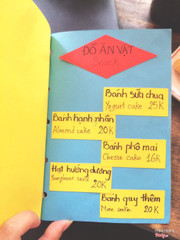 ĐỒ ĂN VẶT
Bánh sữa chua
Yogurt cake 25K
Bánh hạnh nhân
Almond cake 20K
Bánh phô mai
Cheese cake 16K
Hạt hướng dương
20K
Bánh quy thêm
More cookie 20K